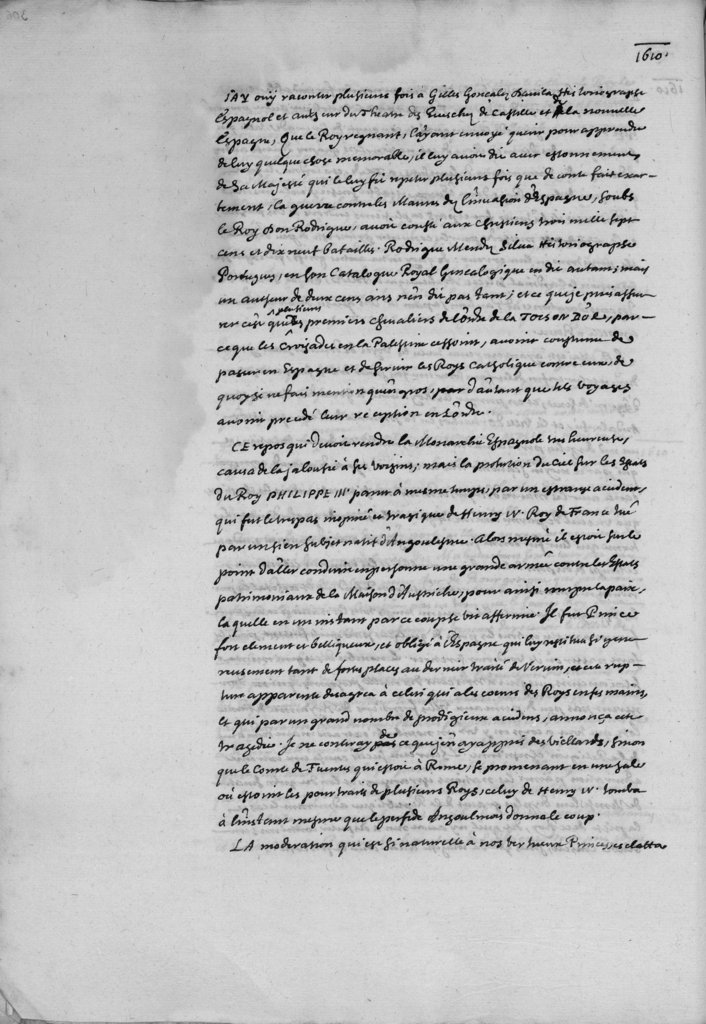 1610.
IAY ouy raconter plusieurs fois à Gilles Goncalez Dauila Historiographe
Espagnol et auteur du Theatre des Euesches de Castille et de la nouuelle
Espagne, Que le Roy regnant, l'ayant enuoyé querir pour apprendre
de luy quelque chose memorable, il luy auoit dit auec estonnement
de Sa Majesté qui le luy fit repeter plusieurs fois que de conte fait exac-
tement, la guerre contre les Maures dez l'inuasion d'Espagne, soubs
le Roy Don Rodrigue, auoit cousté aux Chrestiens trois mille sept
cens et dix neuf batailles. Rodrigue Mendez Silua Historiographe
Portugais, en son Catalogue Royal Genealogique en dit autant; mais
un autheur de deux cens ans n'en dit pas tant; et ce que je puis assu-
rer c'est que plusieurs des premiers cheualiers de l'Ordre de la TOISON D'OR, par-
ce que les Croisades en la Palestine cessoint, auoint coustume de
passer en Espagne et de seruir les Roys Catholiques contre eux, de
quoy si ne fais mention qu'en gros, par d'autant que tels voyages
auoint precedé leur reception en l'Ordre.
CE repos qui deuoit rendre la Monarchie Espagnole heureuse,
causa de la jalousie à ses voisins; mais la protection du Ciel sur les Estats
du Roy PHILIPPE III. parut à mesme temps, par un estrange accident,
qui fut le trespas inopiné et tragique de Henry IV. Roy de France tué
par un sien subjet natif d'Angoulesme. Alors mesme il estoit sur le
point d'aller conduire en personne une grande armée contre les Estats
patrimoniaux de la Maison d'Austriche, pour ainsi rompre la paix,
la quelle en un instant par ce coup se vit affermie. Il fut Prince
fort clement et belliqueux, et obligé à l'Espagne qui luy restitua si gene-
reusement tant de fortes places au dernier traité de Veruin, et cete rup-
ture apparente desagrea à celui qui a les coeurs des Roys en ses mains,
et qui par un grand nombre de prodigieux accidens, annonça cete
tragedie. Je ne conteray de ce que j'en ay appris des viellards, sinon
que le Comte de Fuentes qui estoit à Rome, se promenant en une sale
où estoint les pourtraits de plusieurs Roys, celuy de Henry IV. tomba
à l'instant mesme que le perfide Angoulmois donna le coup.
LA moderation qui est si naturelle à nos vertueux Princes, esclatta